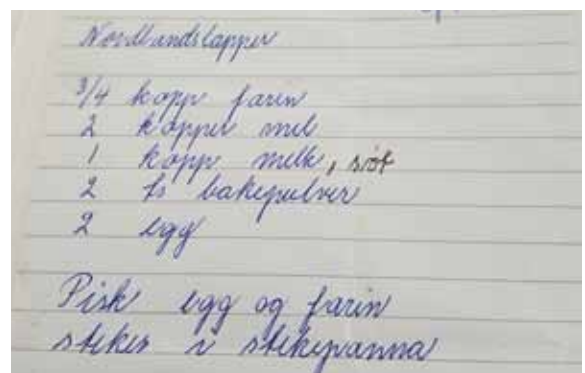 Nordlandslapper
3/4 kopp farin
2 kopper mel
1 kopp melk, søt
2 ts bakepulver
2 egg
Pisk egg og farin
stekes i stekepanna